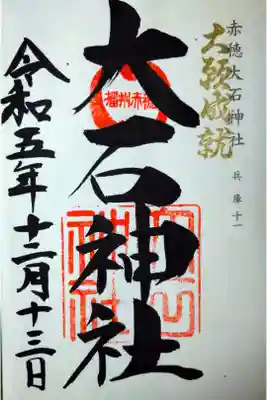 赤穂大石神社
兵庫十一
大願成就
播州赤穂
大石神社
令和五年十二月十三日